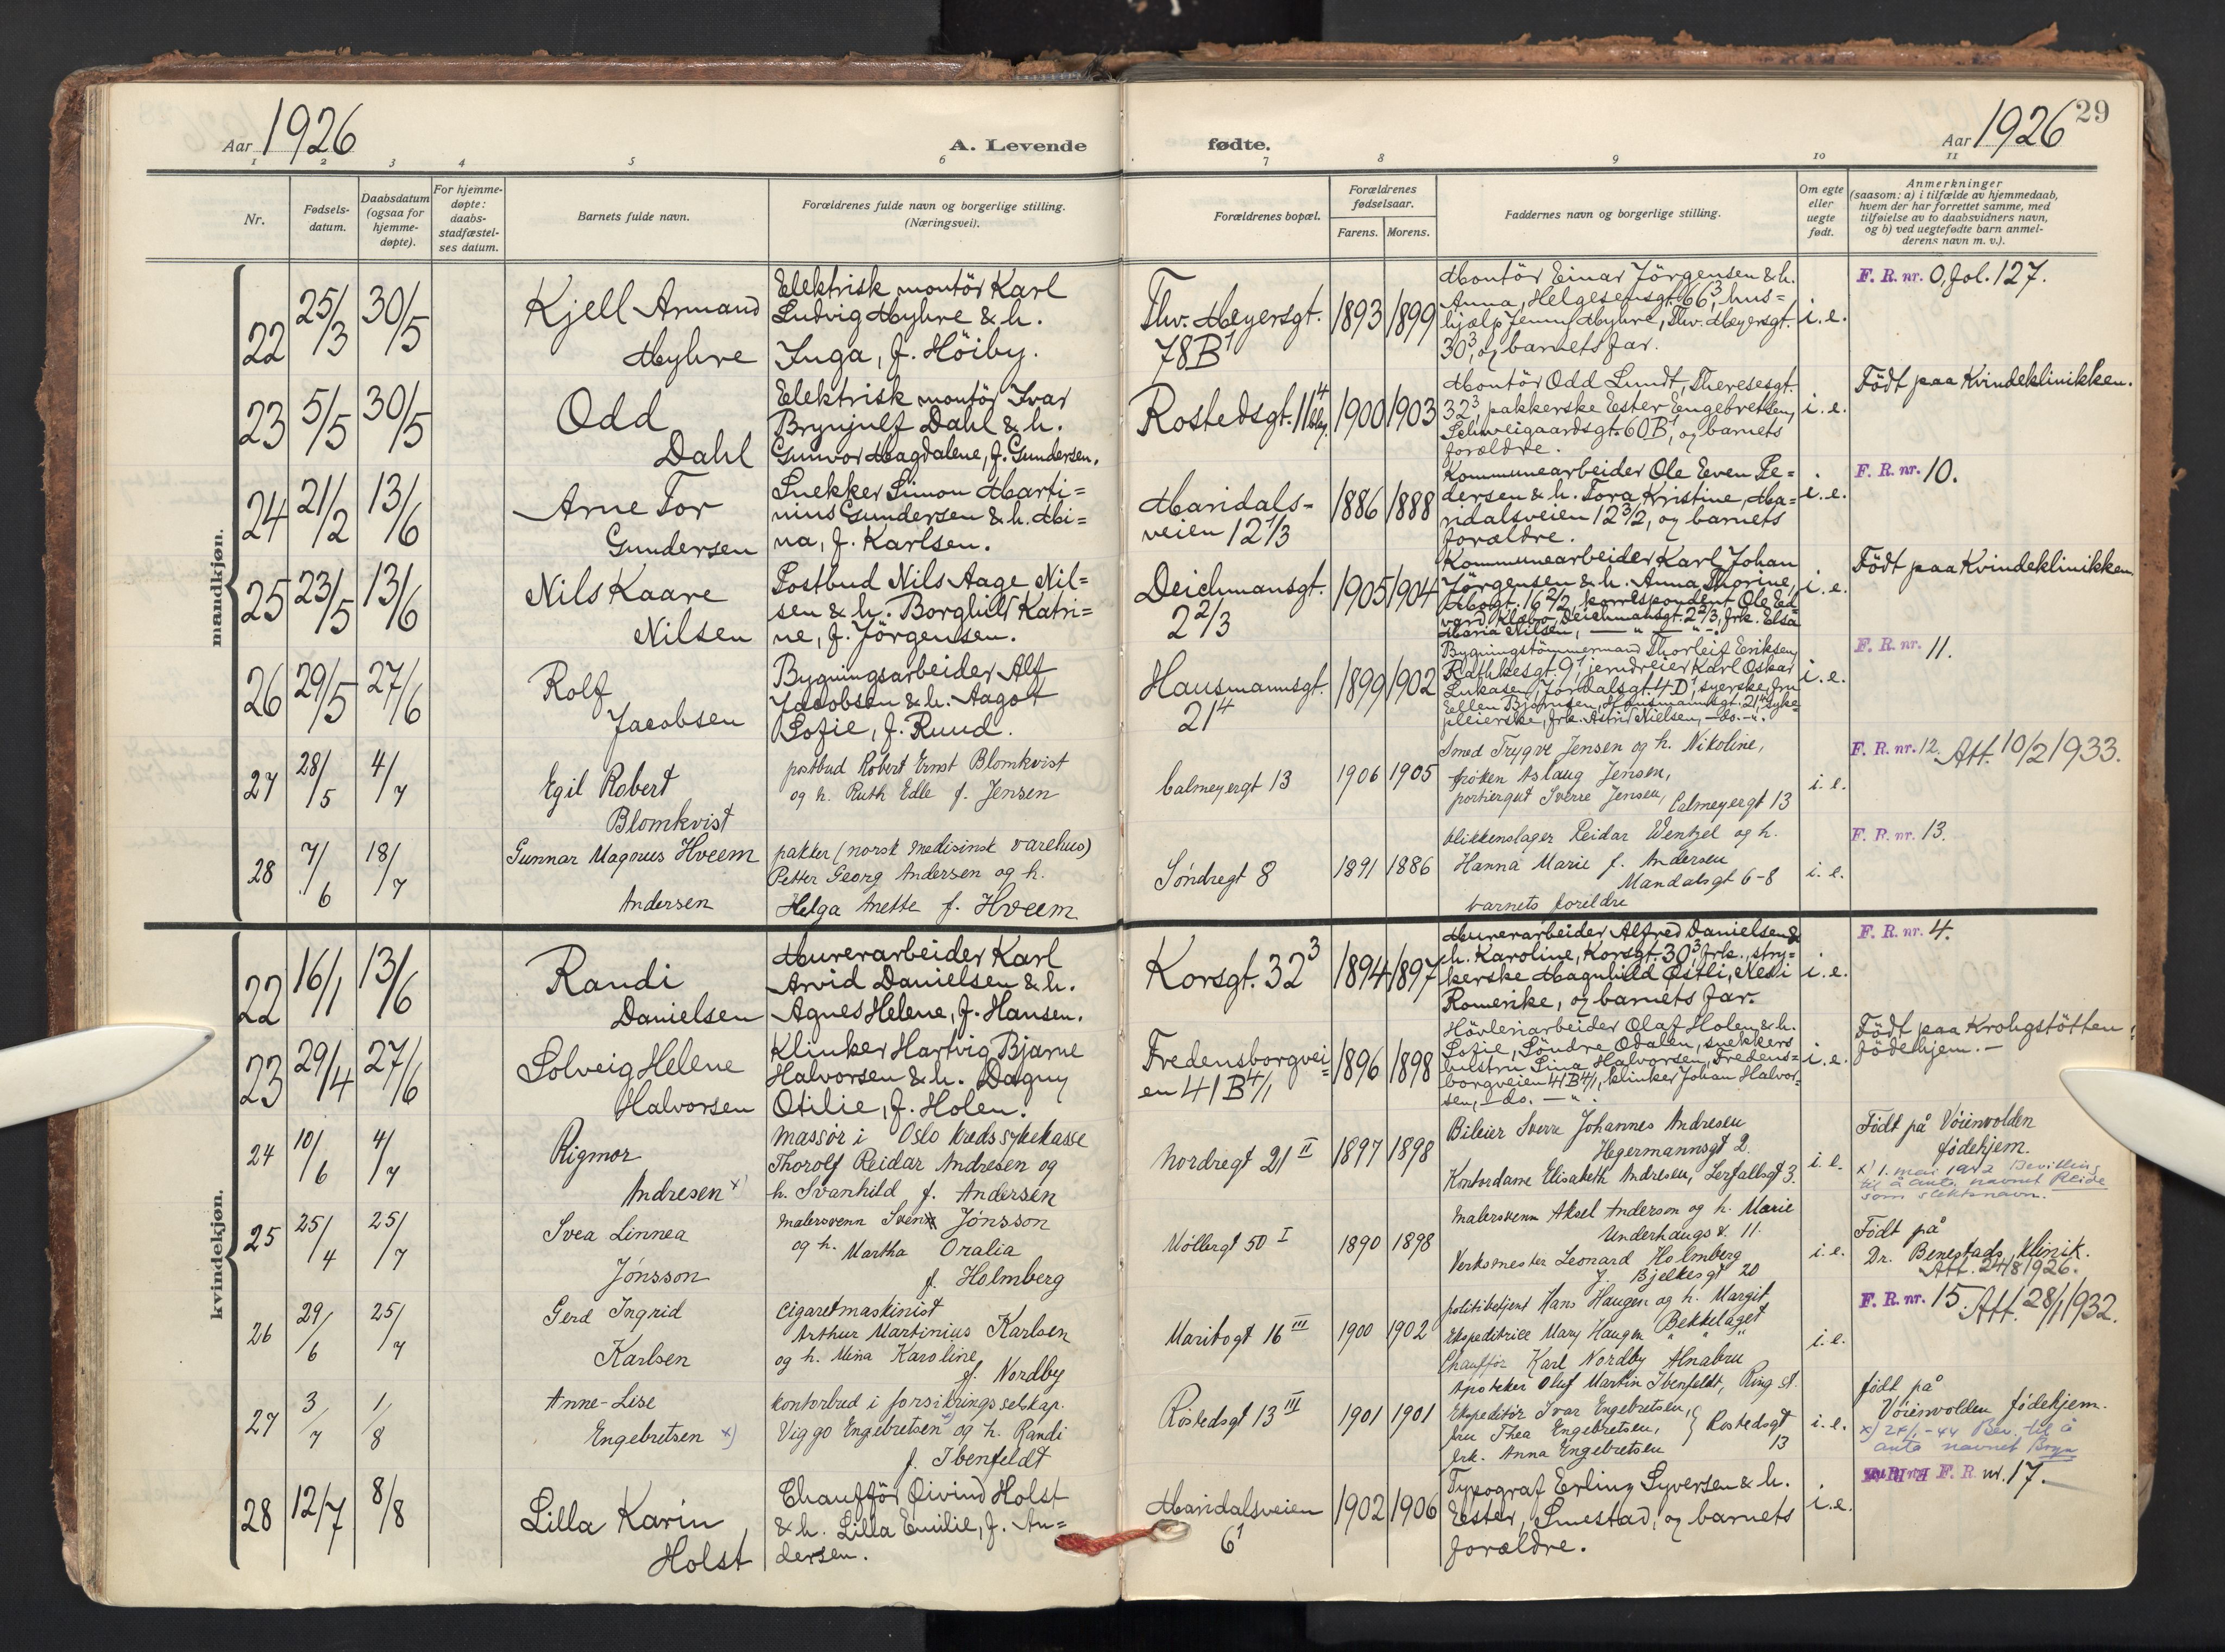 Aar 1926
A. Levende
fødte.
Aar 1926
29
1 2 3 4 5 6 7 8 9 10 11
Nr.
Fødsels-
datum.
Daabsdatum
(ogsaa for
hjemme-
døpte).
For hjemme-
døpte:
daabs-
stadfæstel-
ses datum.
Barnets fulde navn.
Forældrenes fulde navn og borgerlige stilling.
(Næringsvei).
Forældrenes bopæl.
Forældrenes
fødselsaar.
Farens. Morens.
Faddernes navn og borgerlige stilling.
Om egte
eller
uegte
født.
Anmerkninger
(saasom: a) i tilfælde av hjemmedaab,
hvem der har forrettet samme, med
tilføielse av to daabsvidners navn,
og b) ved uegtefødte barn anmel-
derens navn m. v.).
mandkjøn.
22 25/3 30/5
Kjell Armand
Myhre
Elektrisk montör Karl
Ludvig Myhre & h.
Inga, f. Höiby.
Thv. Meyersgt.
78B1
1893 1899
Montör Einar Jörgensen & h.
Anna, Helgesensgt. 66³, hus=
hjælp Jenny Myhre, Thv. Meyersgt.
30³, og barnets far.
i. e.
F. R. nr. 0, fol. 127.
23 5/5 30/5
Odd
Dahl
Elektrisk montör Ivar
Brynjulf Dahl & h.
Gunvor Magdalene, f. Gundersen.
Rostedsgt. 11
1900 1903
Montör Odd Lundt, Theresesgt.
32³, pakkerske Ester Engebretsen,
Schweigaardsgt. 60B1, og barnets
forældre.
i. e.
Födt paa Kvindeklinikken.
24 21/2 13/6
Arne Tor
Gundersen
Snekker Simon Marti=
nius Gundersen & h. Mi=
na, f. Karlsen.
Maridals-
veien 12 1/3
1886 1888
Kommunearbeider Ole Even Pe=
dersen & h. Tora Kristine, Ma=
ridalsveien 12 3/2, og barnets
forældre.
i. e.
F. R. nr. 10.
25 23/5 13/6
Nils Kaare
Nilsen
Postbud Nils Aage Nil=
sen & h. Borghild Katri=
ne, f. Jörgensen.
Deichmansgt.
2 2/3
1905 1904
Kommunearbeider Karl Johan
Jörgensen & h. Anna Thorine,
16 2/2, korrespondent Ole Ed=
vard Klabo, Deichmansgt. 2 2/3, frk. Elsa
Maria Nilsen, — " — " —.
i. e.
Födt paa Kvindeklinikken
26 29/5 27/6
Rolf
Jacobsen
Bygningsarbeider Alf
Jacobsen & h. Aagot
Sofie, f. Ruud.
Hausmannsgt.
21⁴
1899 1902
Bygningstömmermand Thorleif Eriksen,
Rathkesgt. 9¹, jerndreier Karl Oskar
Lukasen, Jordalsgt. 4 D¹, syerske, fru
Ellen Björnsen, Hausmannsgt. 21, syke=
pleierske, frk. Astrid Nielsen, —do.—
i. e.
F. R. nr. 11.
27 28/5 4/7
Egil Robert
Blomkvist
postbud Robert Ernst Blomkvist
og h. Ruth Edle f. Jensen
Calmeyergt 13
1906 1905
Smed Trygve Jensen og h. Nikoline,
frøken Aslaug Jensen,
portiergut Sverre Jensen, Calmeyergt 13
i. e.
F. R. nr. 12. Att. 10/2 1933.
28 7/6 18/7
Gunnar Magnus Hveem
Andersen
pakker (norsk medisinsk varehus)
Petter Georg Andersen og h.
Helga Anette f. Hveem
Søndregt 8
1891 1886
blikkenslager Reidar Wentzel og h.
Hanna Marie f. Andersen
Mandalsgt 6-8
barnets foreldre
i. e.
F. R. nr. 13.
kvindekjøn.
22 16/1 13/6
Randi
Danielsen
Murerarbeider Karl
Arvid Danielsen & h.
Agnes Helene, f. Hansen.
Korsgt. 32³
1894 1897
Murerarbeider Alfred Danielsen &
h. Karoline, Korsgt. 30³, frk., stry=
kerske Magnhild Østli, Nedi
Romerike, og barnets far.
i. e.
F. R. nr. 4.
23 29/4 27/6
Solveig Helene
Halvorsen
Klinker Hartvig Bjarne
Halvorsen & h. Dagny
Otilie, f. Holen.
Fredensborgvei=
en 41 B 4/1
1896 1898
Hövleriarbeider Olaf Holen & h.
Sofie, Söndre Odalen, snekkers
hustru Lina Halvorsen, Fredens=
borgveien 41 B 4/1, klinker Johan Halvor=
sen, —do. — ".
i. e.
Födt paa Krohgstötten
födehjem. —
24 10/6 4/7
Rigmor
Andresen x)
Massør i Oslo kreds sykekasse
Thorolf Reidar Andresen og
h. Svanhild f. Andersen
Nordregt 21 II
1897 1898
Bileier Sverre Johannes Andresen
Hegermannsgt 2.
Kontordame Elisabeth Andresen, Lerfallsgt 3.
i. e.
Født på Vöienvolden
fødehjem.
x) 1. mai 1942 Bevilling
til å anta navnet Reide
som slektsnavn.
25 25/4 25/7
Svea Linnea
Jónsson
Malersvenn Sven Jónsson
og h. Martha Oralia
f. Holmberg
Møllergt 50 I
1890 1898
Malersvenn Aksel Anderson og h. Marie
Underhaugs v. 11.
Verksmester Leonard Holmberg
J. Bjelkesgt 20
i. e.
Født på
Dr. Benestads klinik.
Att. 24/8 1926.
26 29/6 25/7
Gerd Ingrid
Karlsen
Cigaretmaskinist
Arthur Martinius Karlsen
og h. Mina Karoline
f. Nordby
Maribogt 16 III
1900 1902
politibetjent Hans Haugen og h. Margit
Ekspeditrice Mary Haugen Bekkelaget
Chauffør Karl Nordby Alnabru
i. e.
F. R. nr. 15. Att. 28/1 1932.
27 3/7 1/8
Anne-Lise
Engebretsen x)
kontorbud i forsikringsselskap.
Viggo Engebretsen x) og h. Randi
f. Ibenfeldt
Rostedsgt 13 III
1901 1901
Apoteker Oluf Martin Ibenfeldt, Ring st.
Ekspeditør Ivar Engebretsen,
fru Thea Engebretsen, } Rostedsgt
frk. Anna Engebretsen 13
i. e.
født på
Vöienvolden fødehjem.
x) -44 Bev. til å
anta navnet Bryn
28 12/7 8/8
Lilla Karin
Holst
Chaufför Øivind Holst
& h. Lilla Emilie, f. An=
dersen.
Maridalsveien
6¹
1902 1906
Typograf Erling Syversen & h.
Ester, Smestad, og barnets
forældre.
i. e.
F. R. nr. 17.